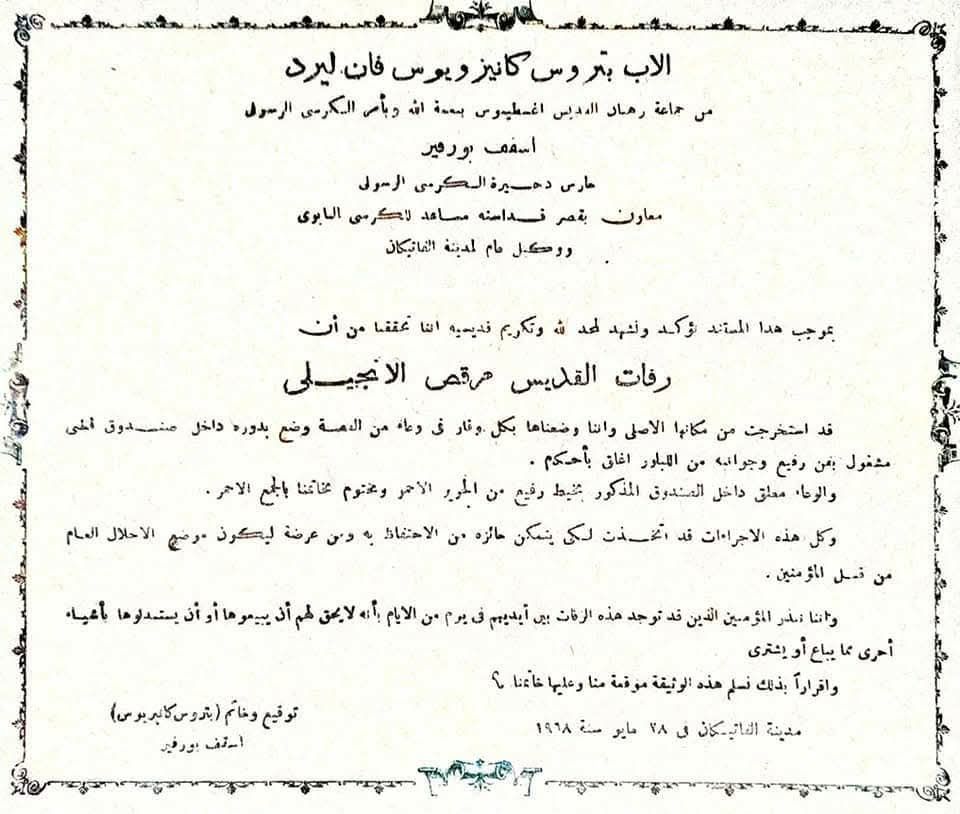 الاب بتروس كانيزويوس فان ليرد
من جماعة رهبان القديس اغسطينوس بنعمة الله وبأمر الكرسى الرسولى
اسقف بورفير
حارس ذخيرة الكرسى الرسولى
معاون بقصر قداسته مساعد للكرسى البابوى
ووكيل عام لمدينة الفاتيكان
بموجب هذا المستند نؤكد ونشهد لمجد لله وتكريم قديسيه اننا تحققنا من أن
رفات القديس مرقص الانجيلى
قد استخرجت من مكانها الاصلى واننا وضعناها بكل وقار فى وعاء من الفضة وضع بدوره داخل صندوق فضى
مشغول بفن رفيع وجوانبه من البللور اغلق بأحكام .
والوعاء معلق داخل الصندوق المذكور بخيط رفيع من الحرير الاحمر ومختوم بخاتمنا بالجمع الاحمر .
وكل هذه الاجراءات قد اتخذت لكى يتمكن حائزه من الاحتفاظ به ومن عرضة ليكون موضع الاجلال العام
من قبل المؤمنين .
واننا نذر المؤمنين الذين قد توجد هذه الرفات بين أيديهم فى يوم من الايام بأنه لا يحق لهم أن يبيعوها أو أن يستبدلوها بأشياء
أخرى مما يباع أو يشترى
واقراراً بذلك نسلم هذه الوثيقة موقعة منا وعليها خاتمنا ؟
مدينة الفاتيكان فى ٢٨ مايو سنة ١٩٦٨
توقيع وخاتم (بتروس كانيزيوس)
اسقف بورفير